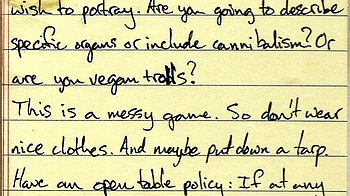 wish to portray. Are you going to describe
specific organs or include cannibalism? Or
are you vegan trolls?
This is a messy game. So don't wear
nice clothes. And maybe put down a tarp.
Have an open table policy: If at any